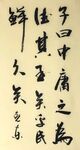 子曰中庸之為
德其至矣乎民
鮮久矣